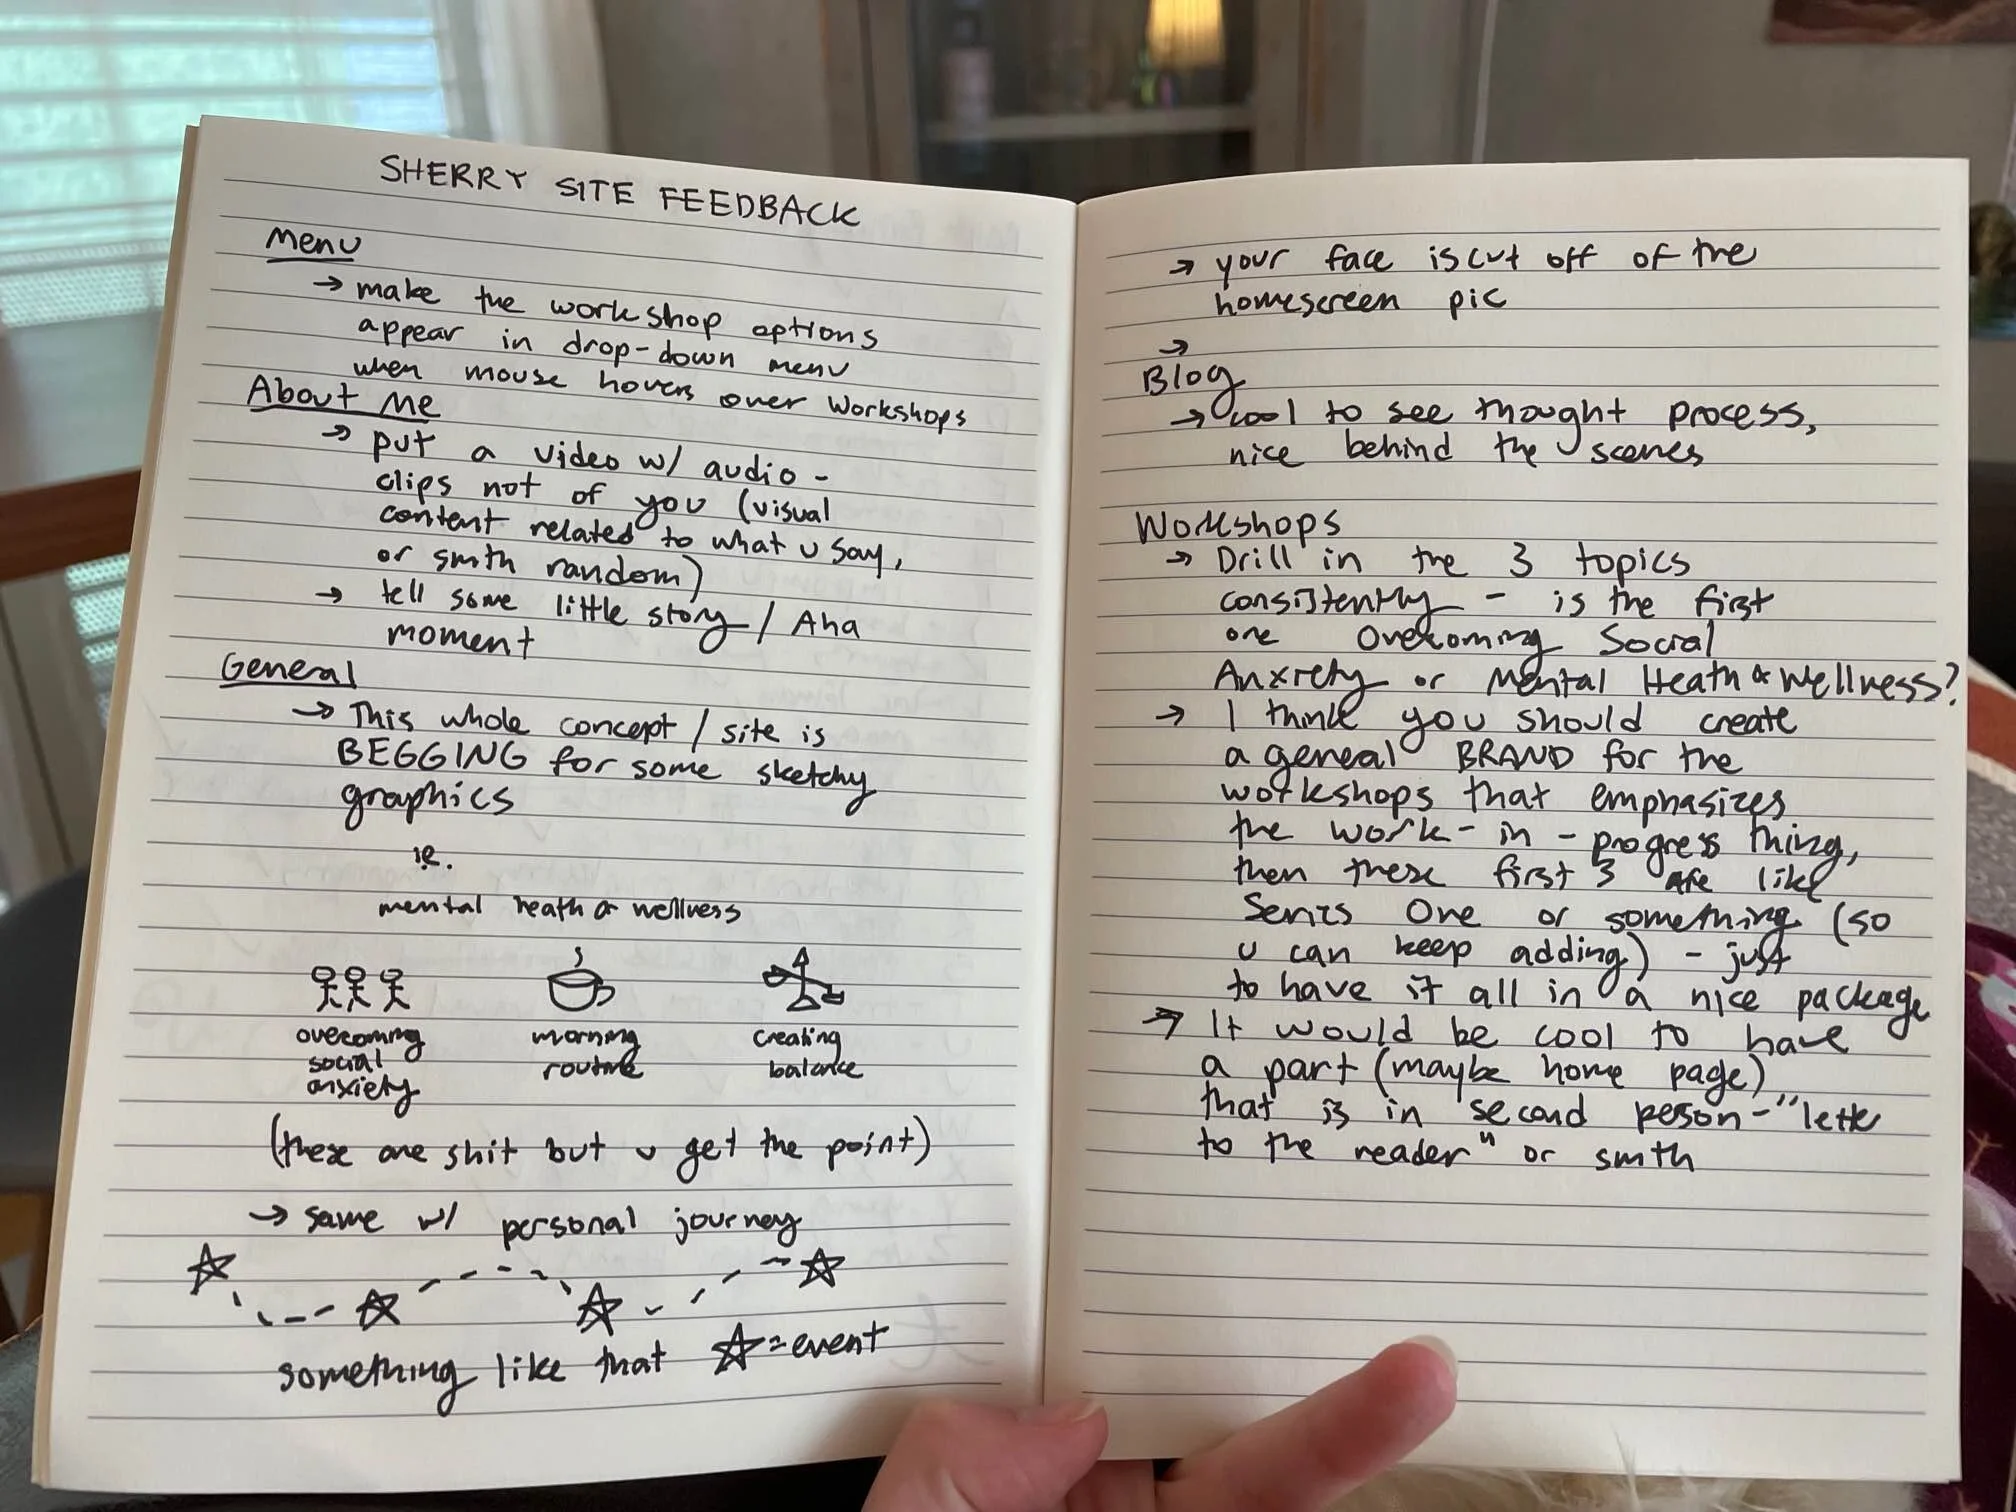 SHERRY SITE FEEDBACK
Menu
→ make the workshop options
appear in drop-down menu
when mouse hovers over Workshops
About Me
→ put a video w/ audio -
clips not of you (visual
content related to what u say,
or smth random)
→ tell some little story / Aha
moment
General
→ This whole concept / site is
BEGGING for some sketchy
graphics
ie.
mental heath & wellness
overcoming social anxiety
morning routine
creating balance
(these are shit but u get the point)
→ same w/ personal journey
something like that ☆=event
→ your face is cut off of the
homescreen pic
→
Blog
→ cool to see thought process,
nice behind the scenes
Workshops
→ Drill in the 3 topics
consistently - is the first
one Overcoming Social
Anxiety or Mental Heath & Wellness?
→ I think you should create
a geneal BRAND for the
workshops that emphasizes
the work-in-progress thing,
then these first 3 are like
Series One or something (so
u can keep adding) - just
to have it all in a nice package
→ It would be cool to have
a part (maybe home page)
that is in second person - "letter
to the reader" or smth